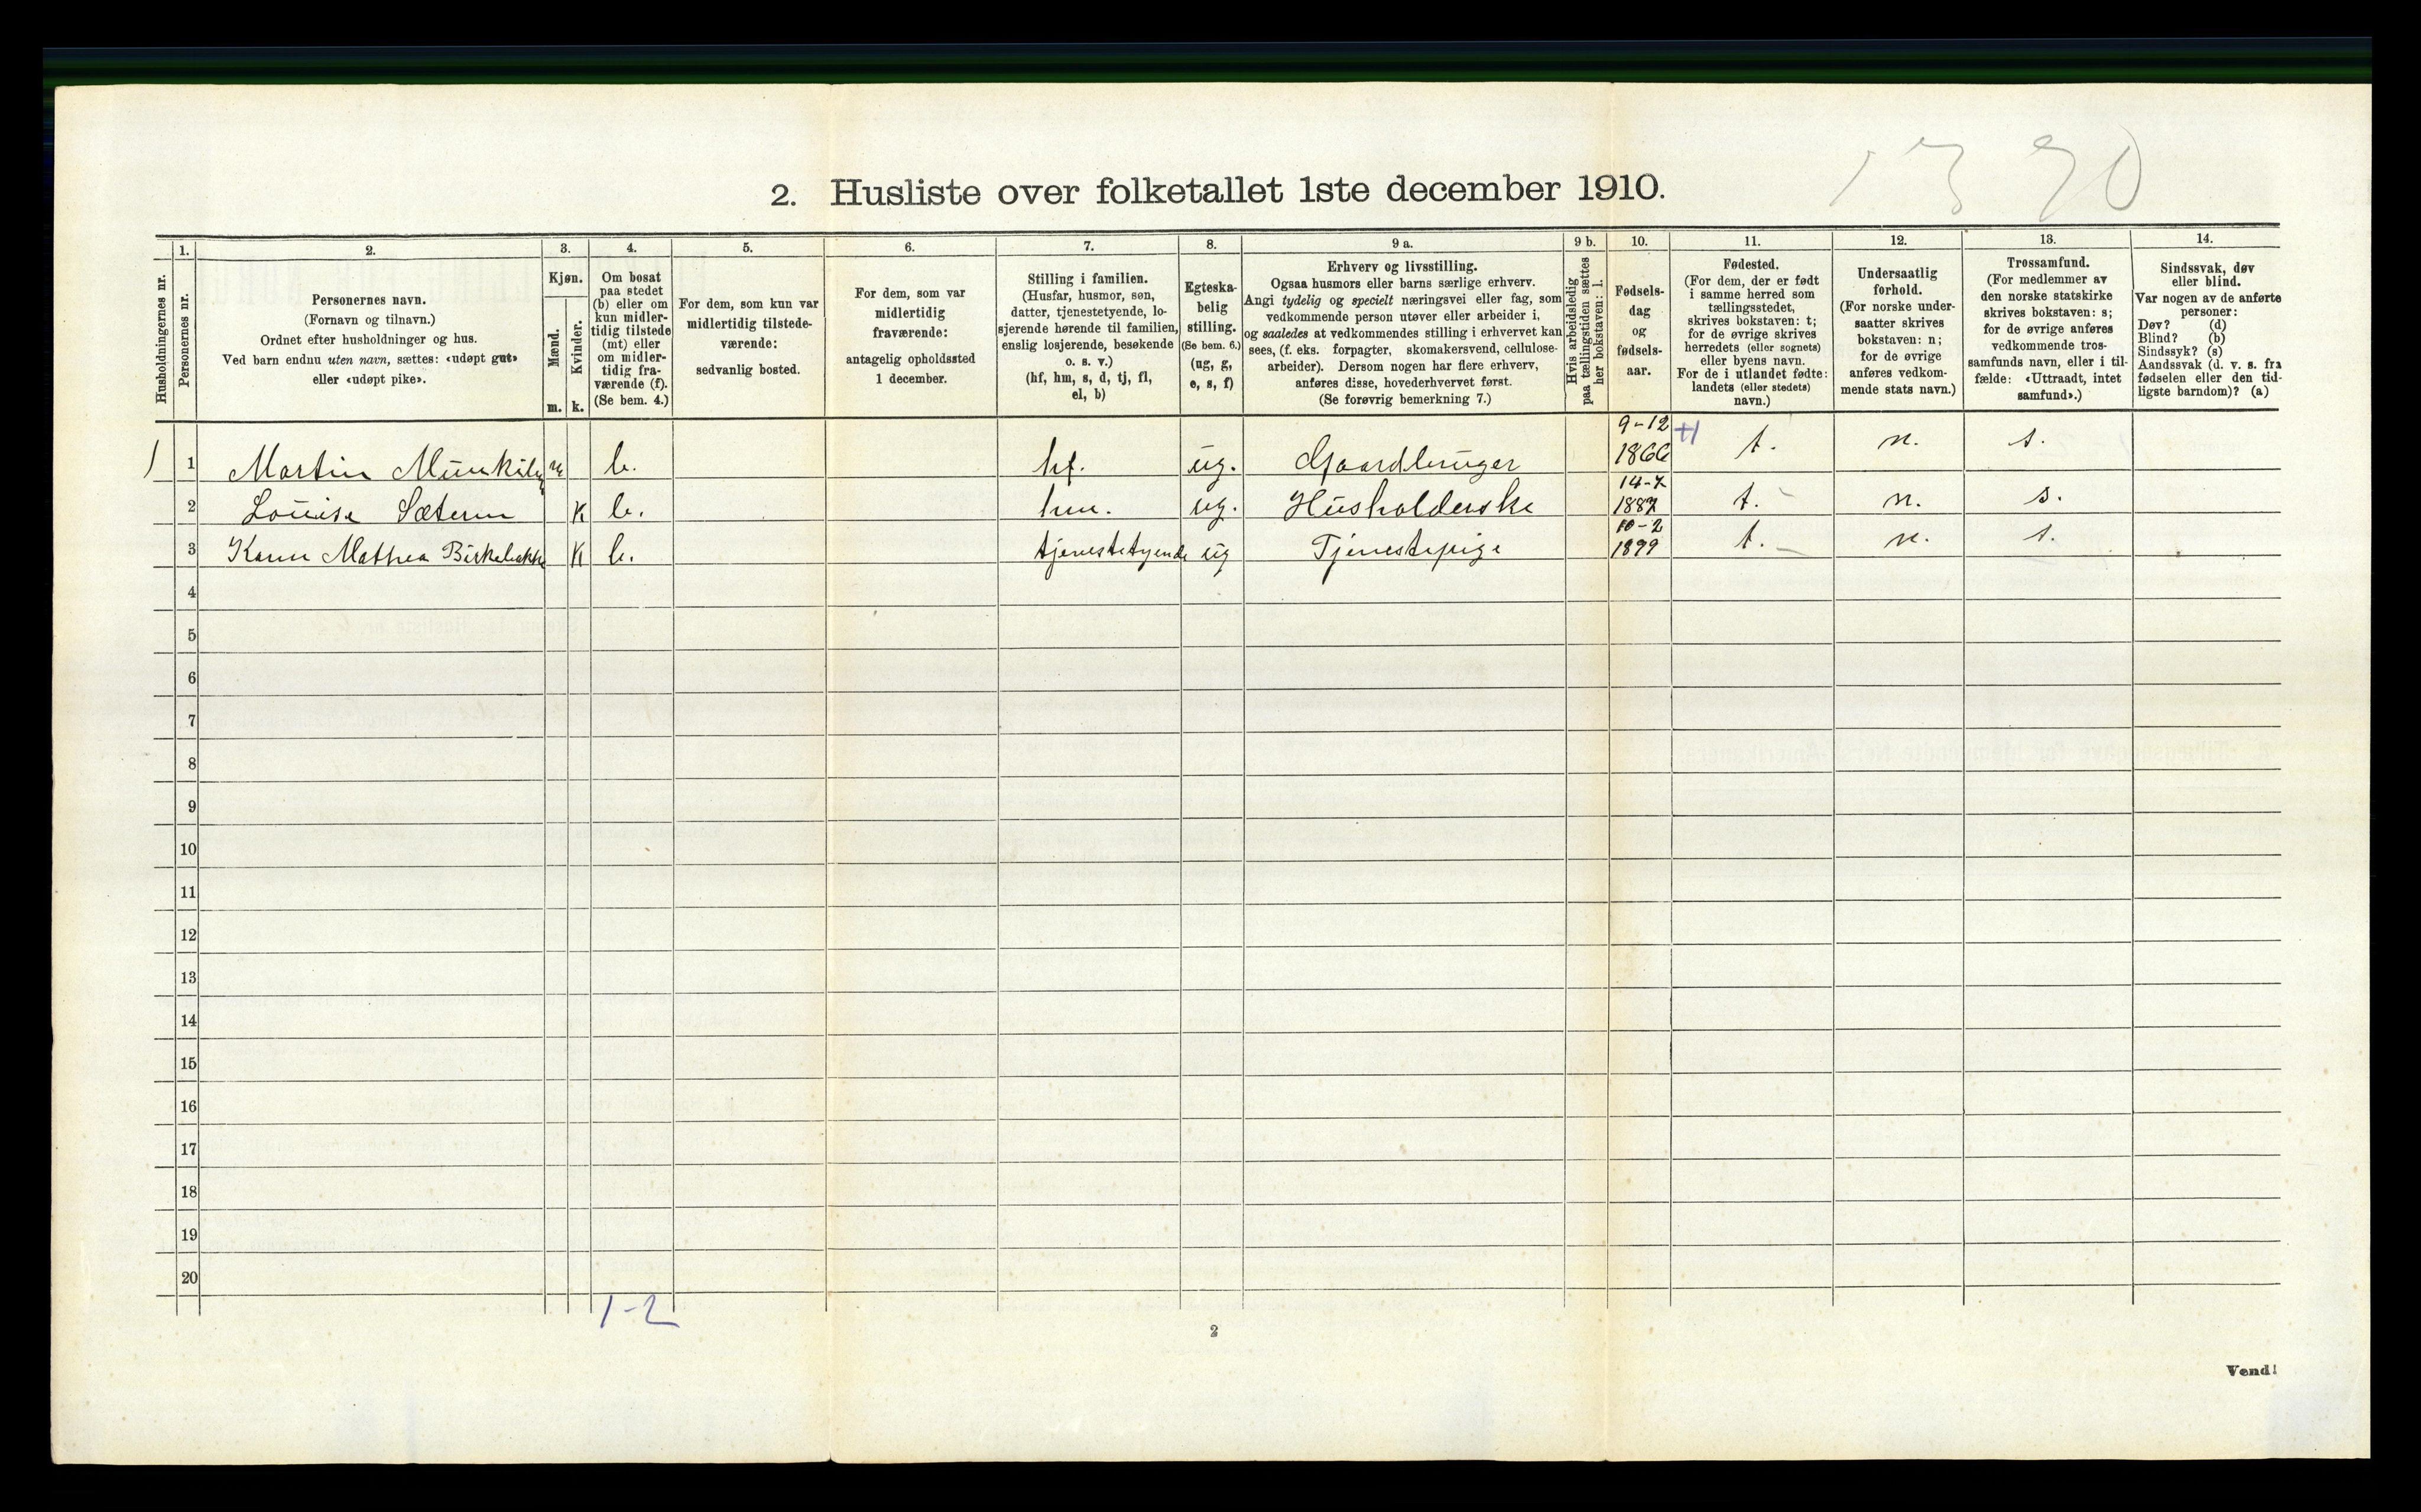 13 90
2. Husliste over folketallet 1ste december 1910.
Husholdningernes nr.
1.
Personernes nr.
2.
Personernes navn.
(Fornavn og tilnavn.)
Ordnet efter husholdninger og hus.
Ved barn endnu uten navn, sættes: «udøpt gut»
eller «udøpt pike».
3.
Kjøn.
Mænd.
Kvinder.
m. k.
4.
Om bosat
paa stedet
(b) eller om
kun midler-
tidig tilstede
(mt) eller
om midler-
tidig fra-
værende (f).
(Se bem. 4.)
5.
For dem, som kun var
midlertidig tilstede-
værende:
sedvanlig bosted.
6.
For dem, som var
midlertidig
fraværende:
antagelig opholdssted
1 december.
7.
Stilling i familien.
(Husfar, husmor, søn,
datter, tjenestetyende, lo-
sjerende hørende til familien,
enslig losjerende, besøkende
o. s. v.)
(hf, hm, s, d, tj, fl,
el, b)
8.
Egteska-
belig
stilling.
(Se bem. 6.)
(ug, g,
e, s, f)
9 a.
Erhverv og livsstilling.
Ogsaa husmors eller barns særlige erhverv.
Angi tydelig og specielt næringsvei eller fag, som
vedkommende person utøver eller arbeider i,
og saaledes at vedkommendes stilling i erhvervet kan
sees, (f. eks. forpagter, skomakersvend, cellulose-
arbeider). Dersom nogen har flere erhverv,
anføres disse, hovederhvervet først.
(Se forøvrig bemerkning 7.)
9 b.
Hvis arbeidsledig
paa tællingstiden sættes
her bokstaven: l.
10.
Fødsels-
dag
og
fødsels-
aar.
11.
Fødested.
(For dem, der er født
i samme herred som
tællingsstedet,
skrives bokstaven: t;
for de øvrige skrives
herredets (eller sognets)
eller byens navn.
For de i utlandet fødte:
landets (eller stedets)
navn.)
12.
Undersaatlig
forhold.
(For norske under-
saatter skrives
bokstaven: n;
for de øvrige
anføres vedkom-
mende stats navn.)
13.
Trossamfund.
(For medlemmer av
den norske statskirke
skrives bokstaven: s;
for de øvrige anføres
vedkommende tros-
samfunds navn, eller i til-
fælde: «Uttraadt, intet
samfund».)
14.
Sindssvak, døv
eller blind.
Var nogen av de anførte
personer:
Døv? (d)
Blind? (b)
Sindssyk? (s)
Aandssvak (d. v. s. fra
fødselen eller den tid-
ligste barndom)? (a)
1 1 Martin m b. hf. ug. Gaardbruger 9-12 1866 t. n. s.
2 Louise Sæteren K b. hm. ug. Husholderske 14-7 1887 t. n. s.
3 Karen Mathea Birkebakke K b. tjenestetyende ug Tjenestepige 10-2 1899 t. n. s.
4
5
6
7
8
9
10
11
12
13
14
15
16
17
18
19
20
1-2
2
Vend!